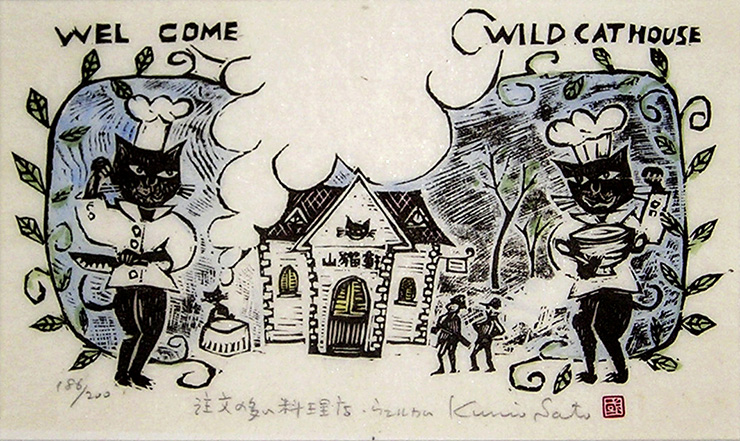 WEL COME
WILD CAT HOUSE
山猫軒
186/200
注文の多い料理店・ウェルカム Kunio Sato